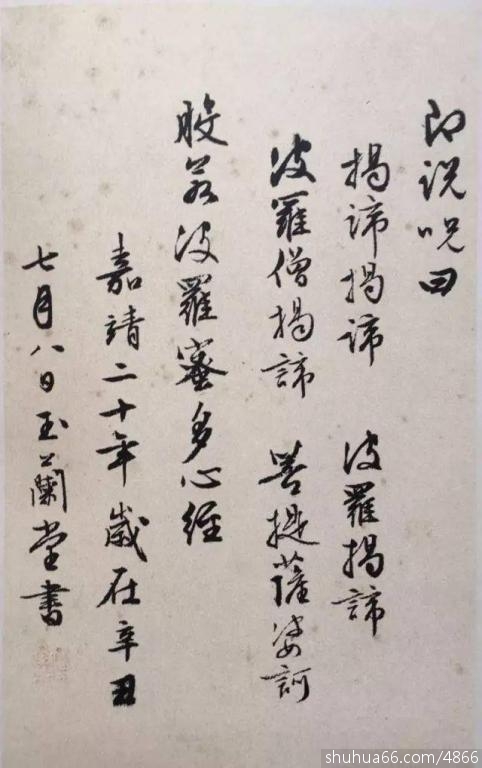 即説呪曰
揭諦揭諦 波羅揭諦
波羅僧揭諦 菩提薩婆訶
般若波羅蜜多心經
嘉靖二十年歲在辛丑
七月八日玉蘭堂書
shuhua66.com/4866